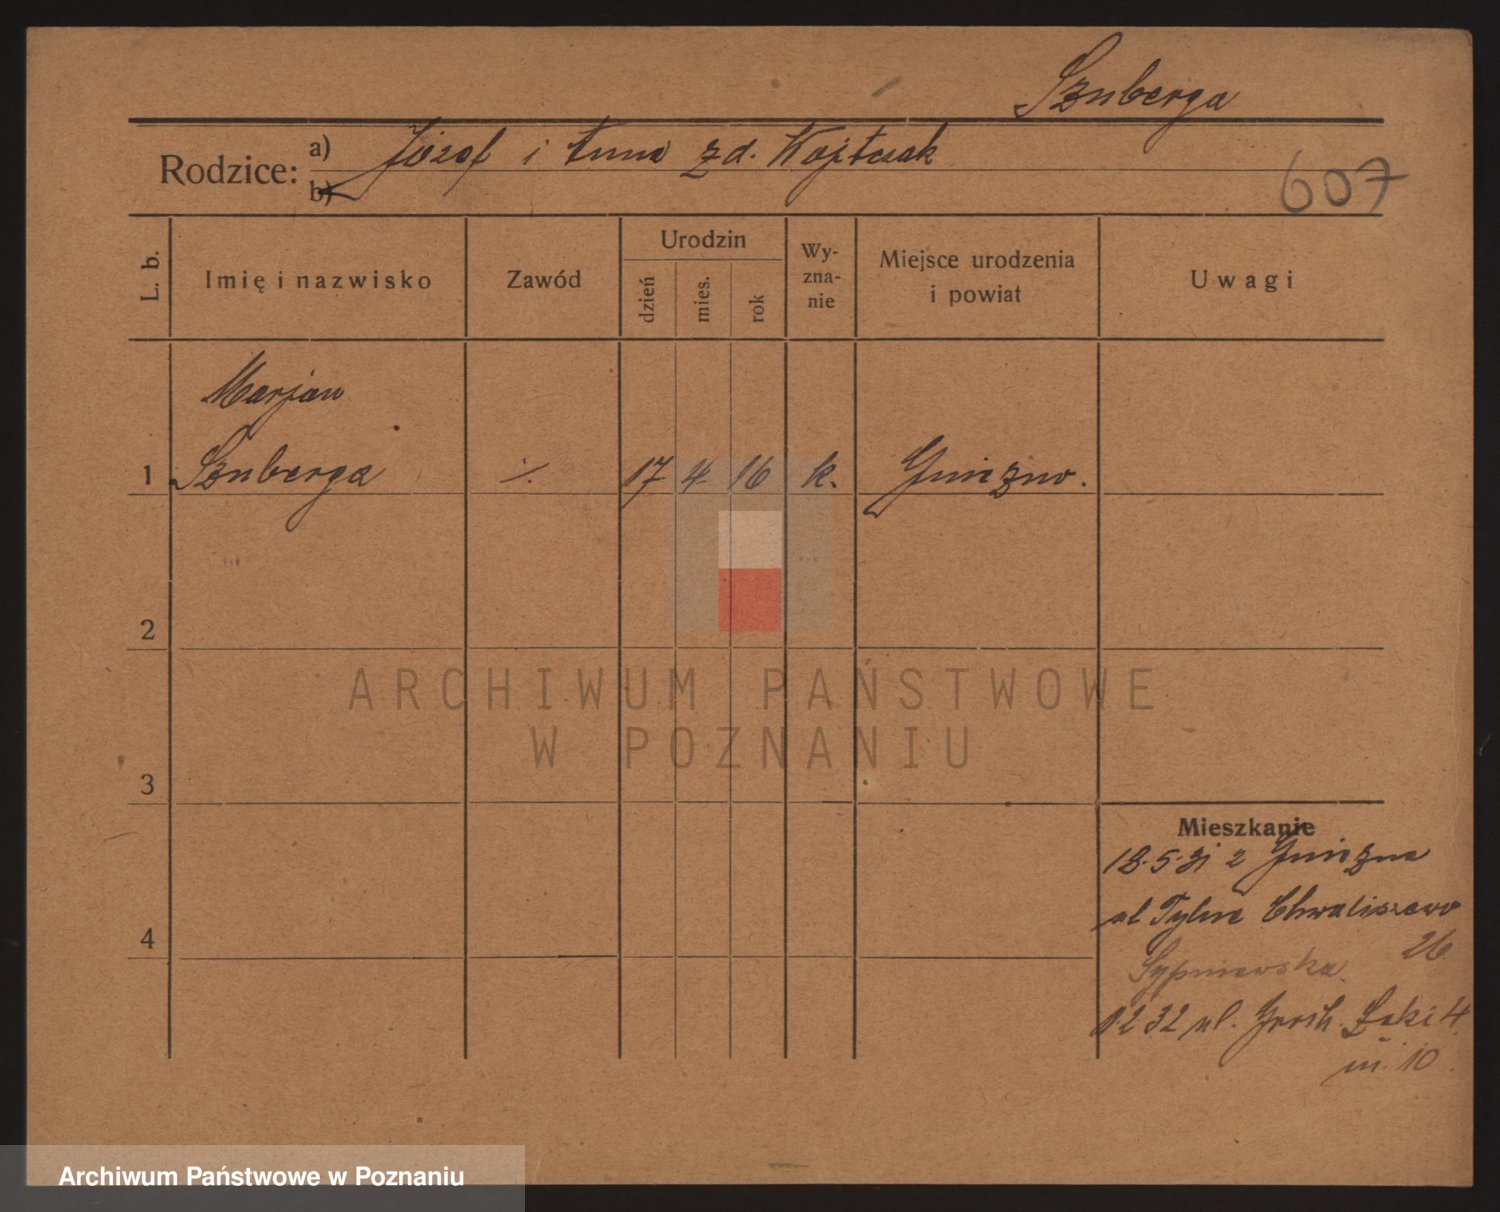 Sznberga
Rodzice: a) Józef i Anna zd. Wojtczak
b)
607
L. b.
Imię i nazwisko
Zawód
Urodzin
dzień
mies.
rok
Wy-
zna-
nie
Miejsce urodzenia
i powiat
Uwagi
Marjan
1 Sznberga ·/. 17 4 16 k. Gniezno.
2
ARCHIWUM PAŃSTWOWE
W POZNANIU
3
Mieszkanie
18.5.31 z Gniezna
ul Tylne Chwaliszewo
4
26
Sypniewska
1 2 32 ul. Groch. Łąki 4
m. 10.
Archiwum Państwowe w Poznaniu